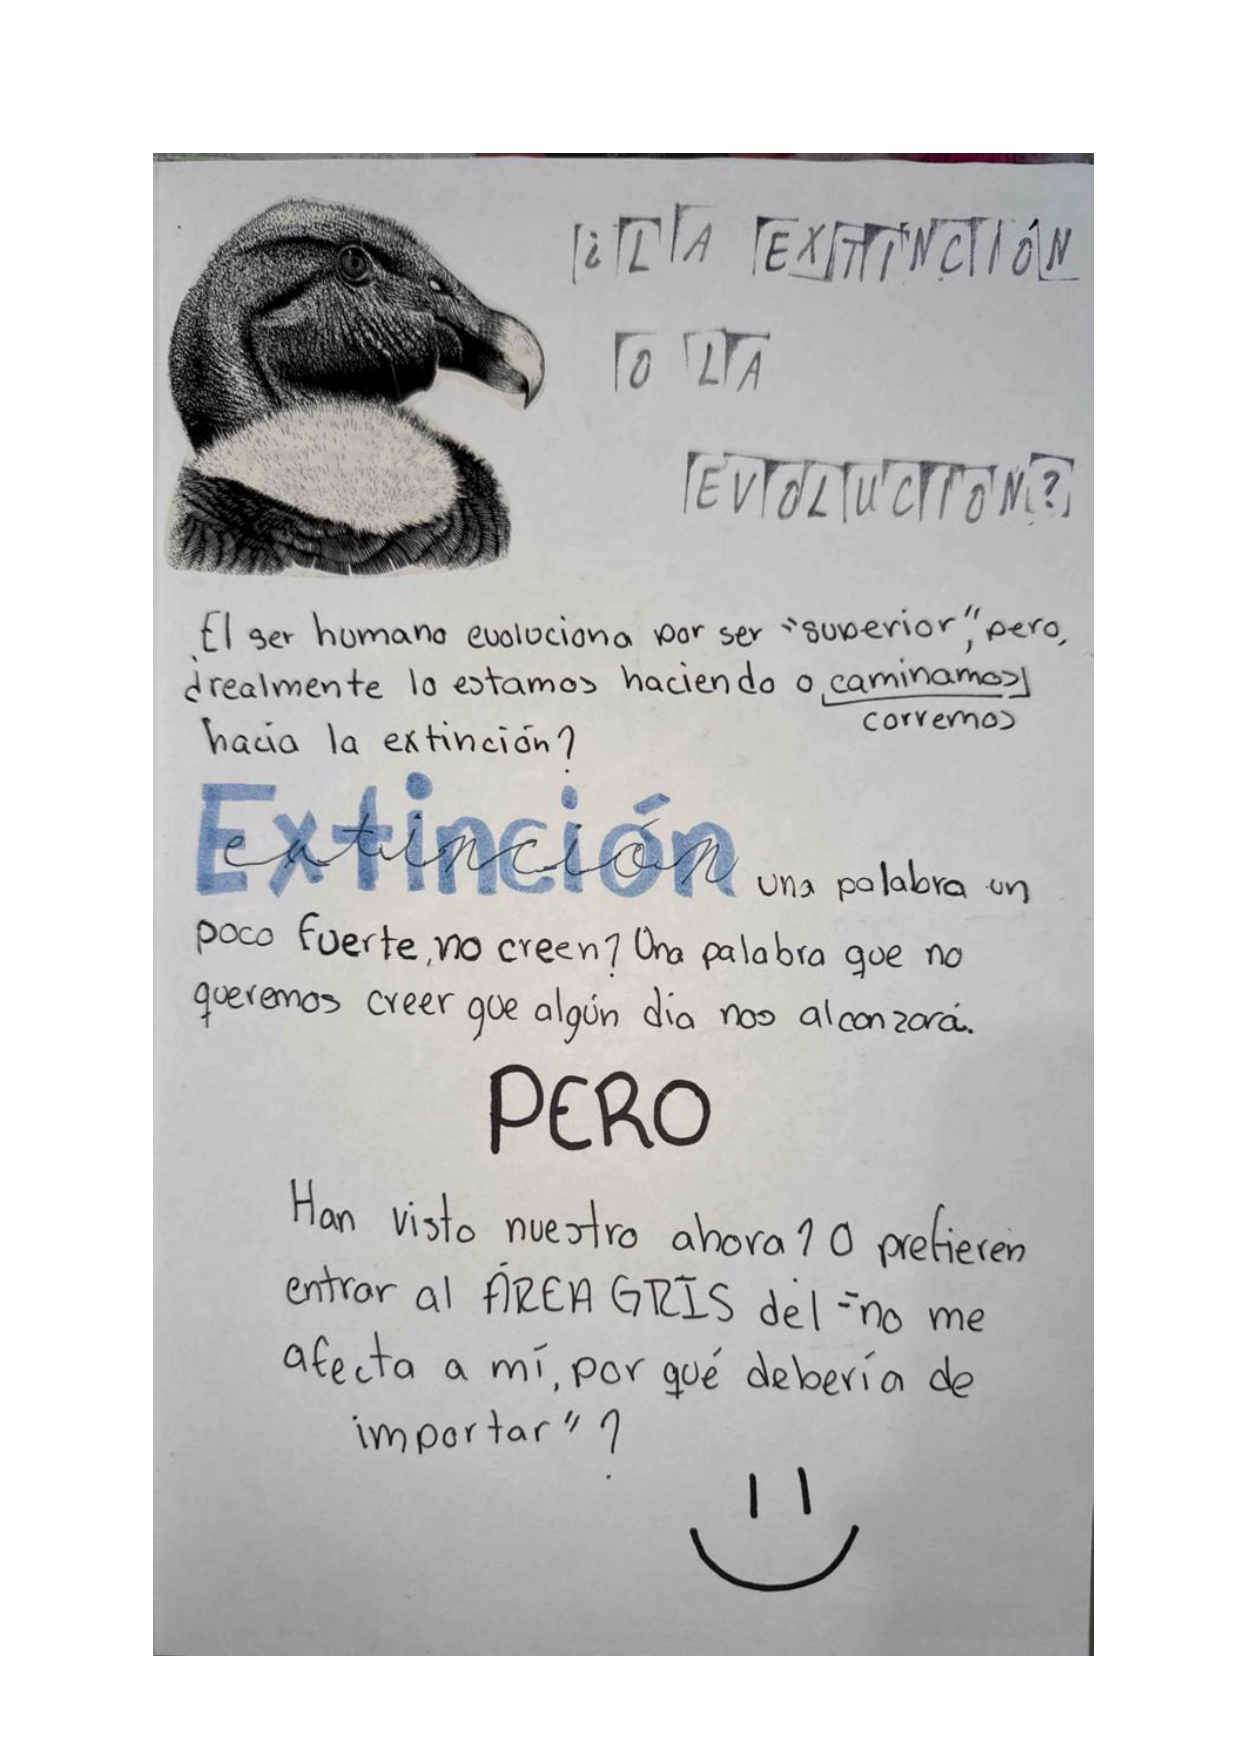 ¿LA EXTINCIÓN
O LA
EVOLUCIÓN?
El ser humano evoluciona por ser "superior", pero,
¿realmente lo estamos haciendo o caminamos
corremos
hacia la extinción?
Extinción
extinción
una palabra un
poco fuerte, no creen? Una palabra que no
queremos creer que algún día nos alcanzará.
PERO
Han visto nuestro ahora? O prefieren
entrar al ÁREA GRIS del "no me
afecta a mí, por qué debería de
importar"?